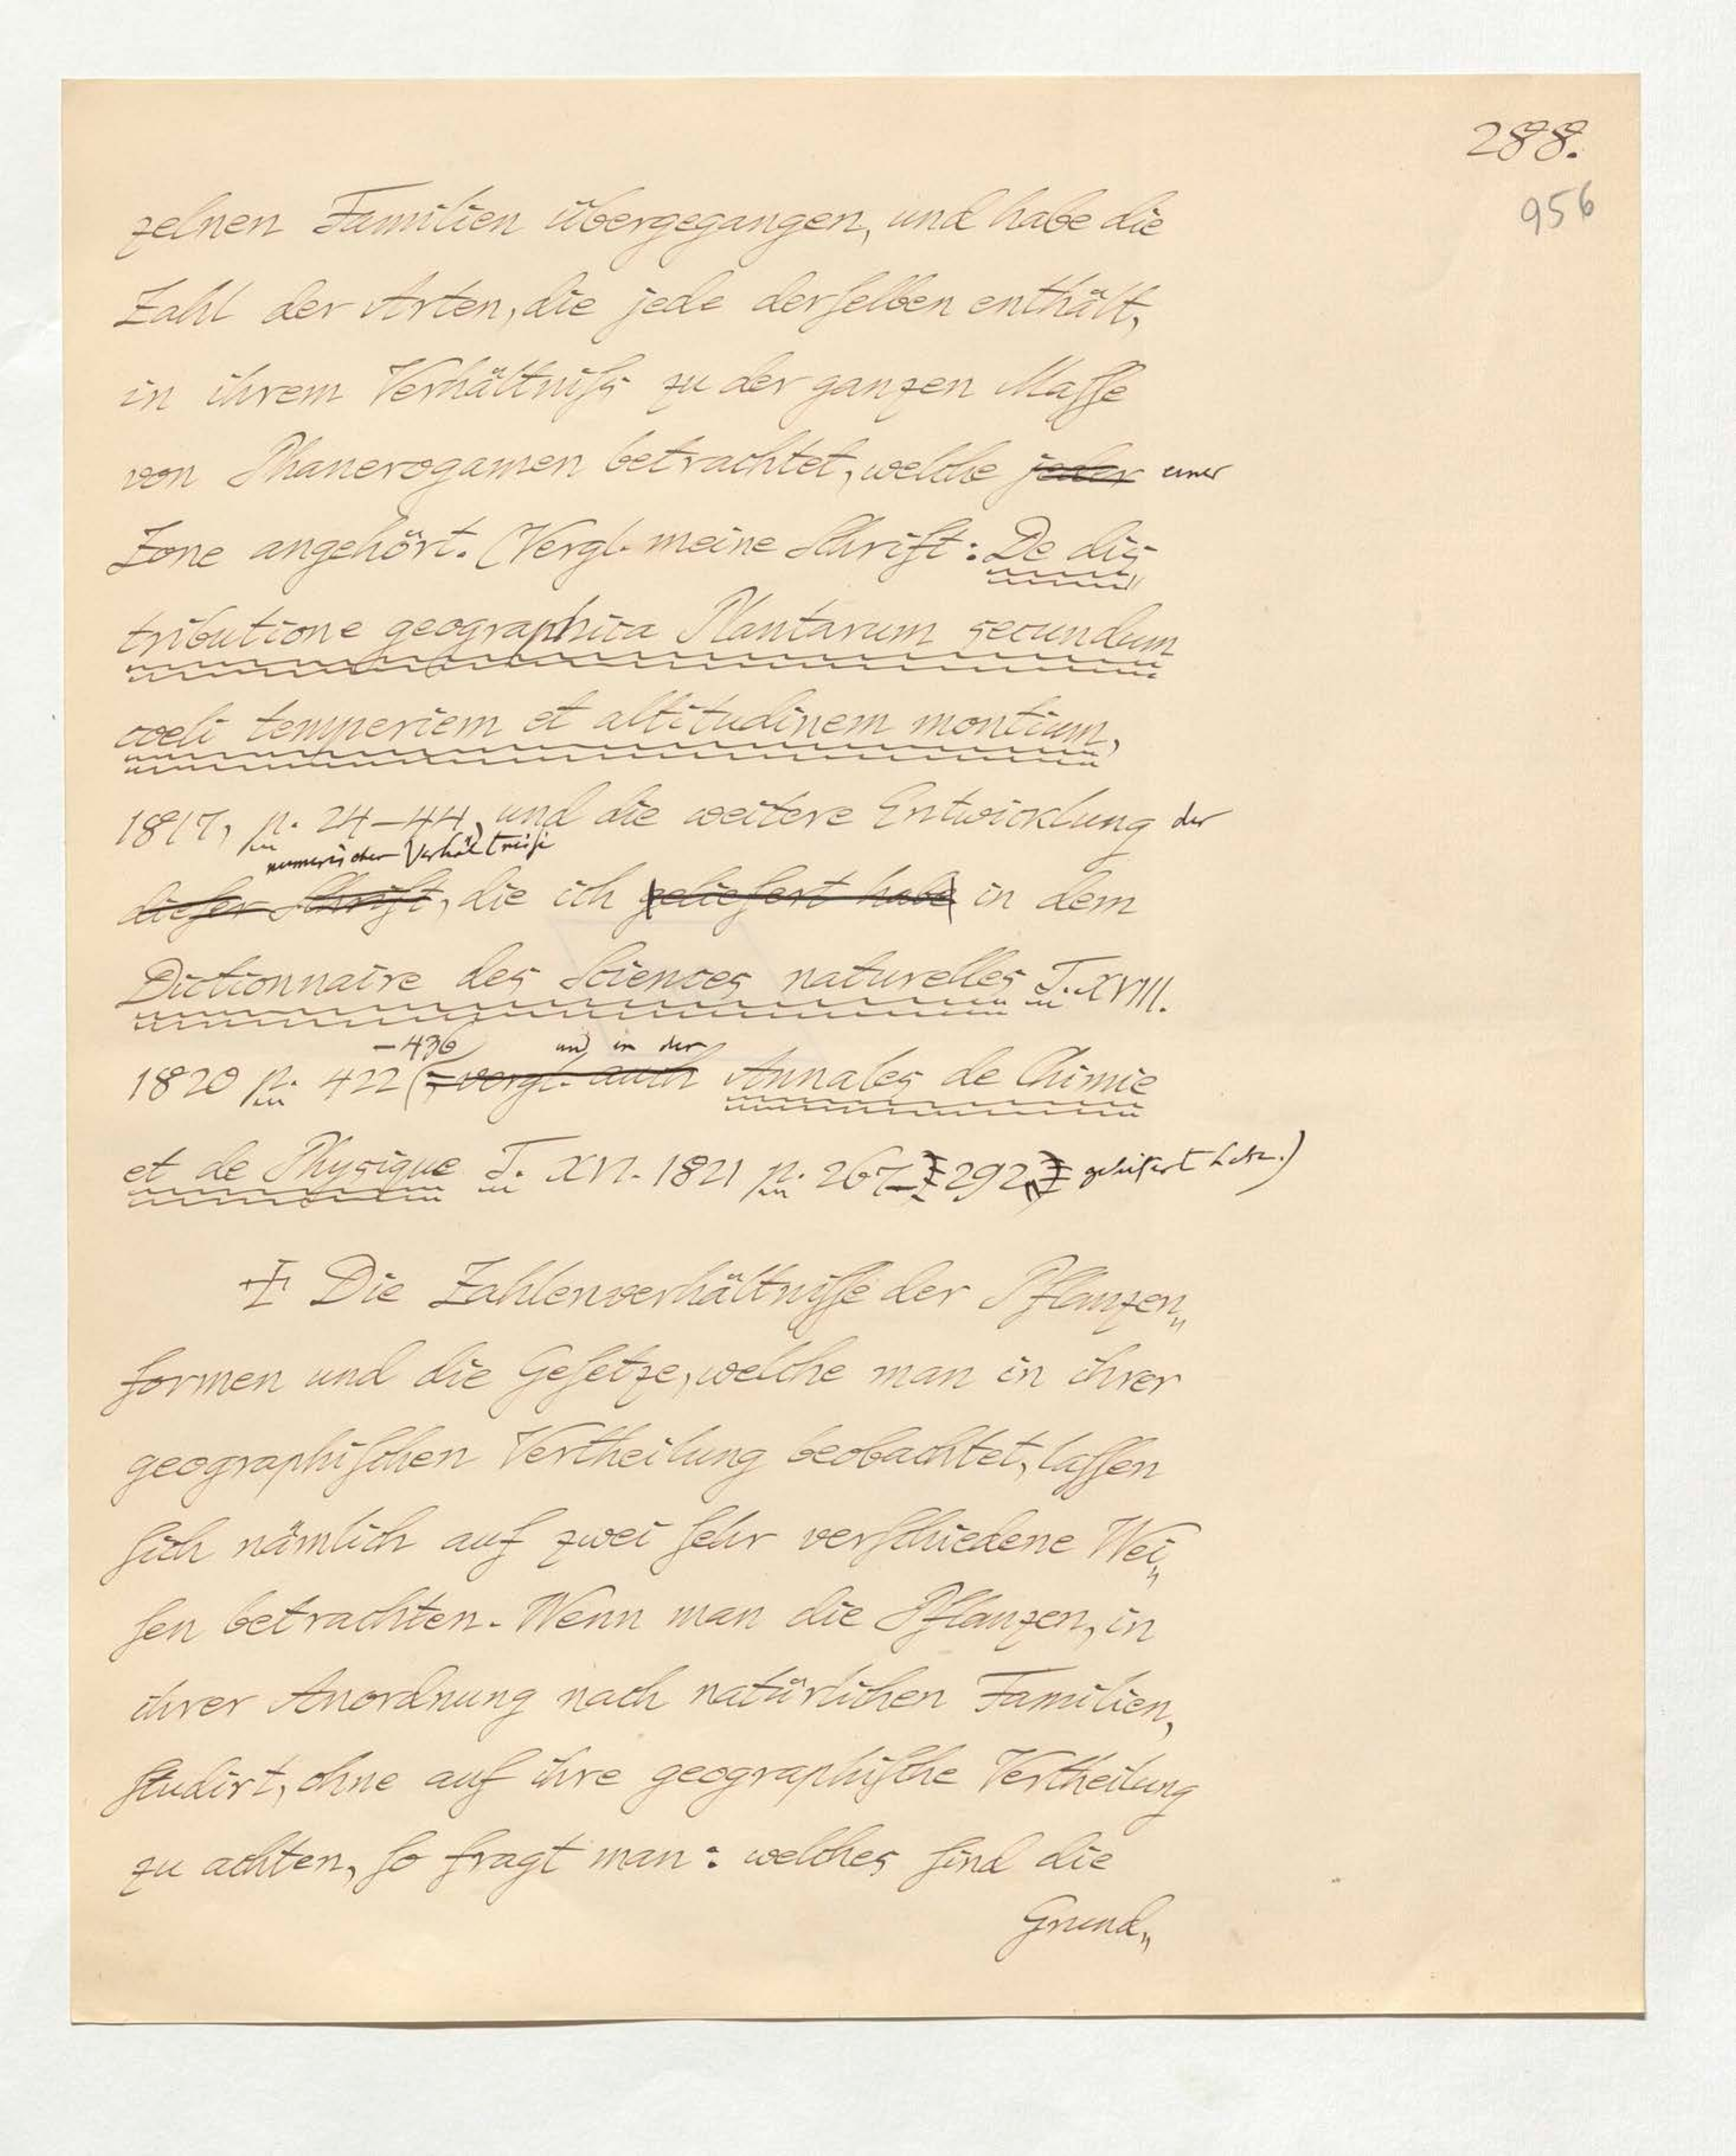 288.
956
zelnen Familien übergegangen, und habe die
Zahl der Arten, die jede derſelben enthält,
in ihrem Verhältniſs zu der ganzen Maſſe
von Phanerogamen betrachtet, welche jeder einer
Zone angehört. (Vergl. meine Schrift: De dis„
tributione geographica Plantarum secundum
coeli temperiem et altitudinem montium,
1817, p. 24–44, und die weitere Entwicklung der
numerischen Verhältnisse
dieſer Schrift, die ich geliefert habe in dem
Dictionnaire des Sciences naturelles T. XVIII.
–436 und in der
1820 p. 422 (; vergl. auch Annales de Chimie
et de Physique T. XVI. 1821 p. 267–292 geliefert habe.)
Die Zahlenverhältniſſe der Pflanzen„
formen und die Geſetze, welche man in ihrer
geographiſchen Vertheilung beobachtet, laſſen
ſich nämlich auf zwei ſehr verſchiedene Wei„
ſen betrachten. Wenn man die Pflanzen, in
ihrer Anordnung nach natürlichen Familien,
ſtudirt, ohne auf ihre geographiſche Vertheilung
zu achten, ſo fragt man: welches ſind die
Grund„